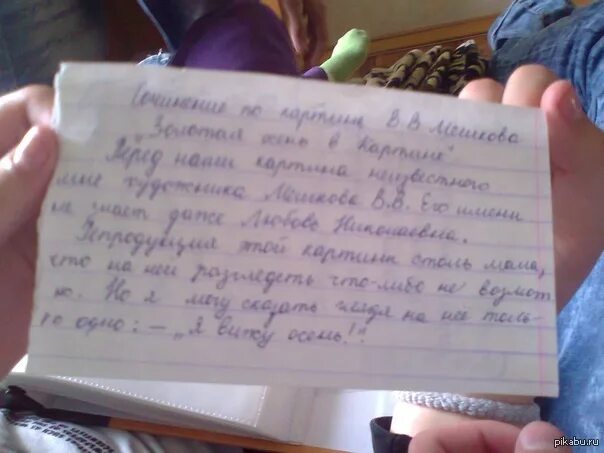 Сочинение по картине В.В Мешкова
"Золотая осень в Карпатах"
Перед нами картина неизвестного
мне художника Мешкова В.В. Его имени
не знает даже Любовь Николаевна.
Репродукция этой картины столь мала,
что на ней разглядеть что-либо не возмож
но. Но я могу сказать глядя на неё толь-
ко одно: – „Я вижу осень!".
pikabu.ru